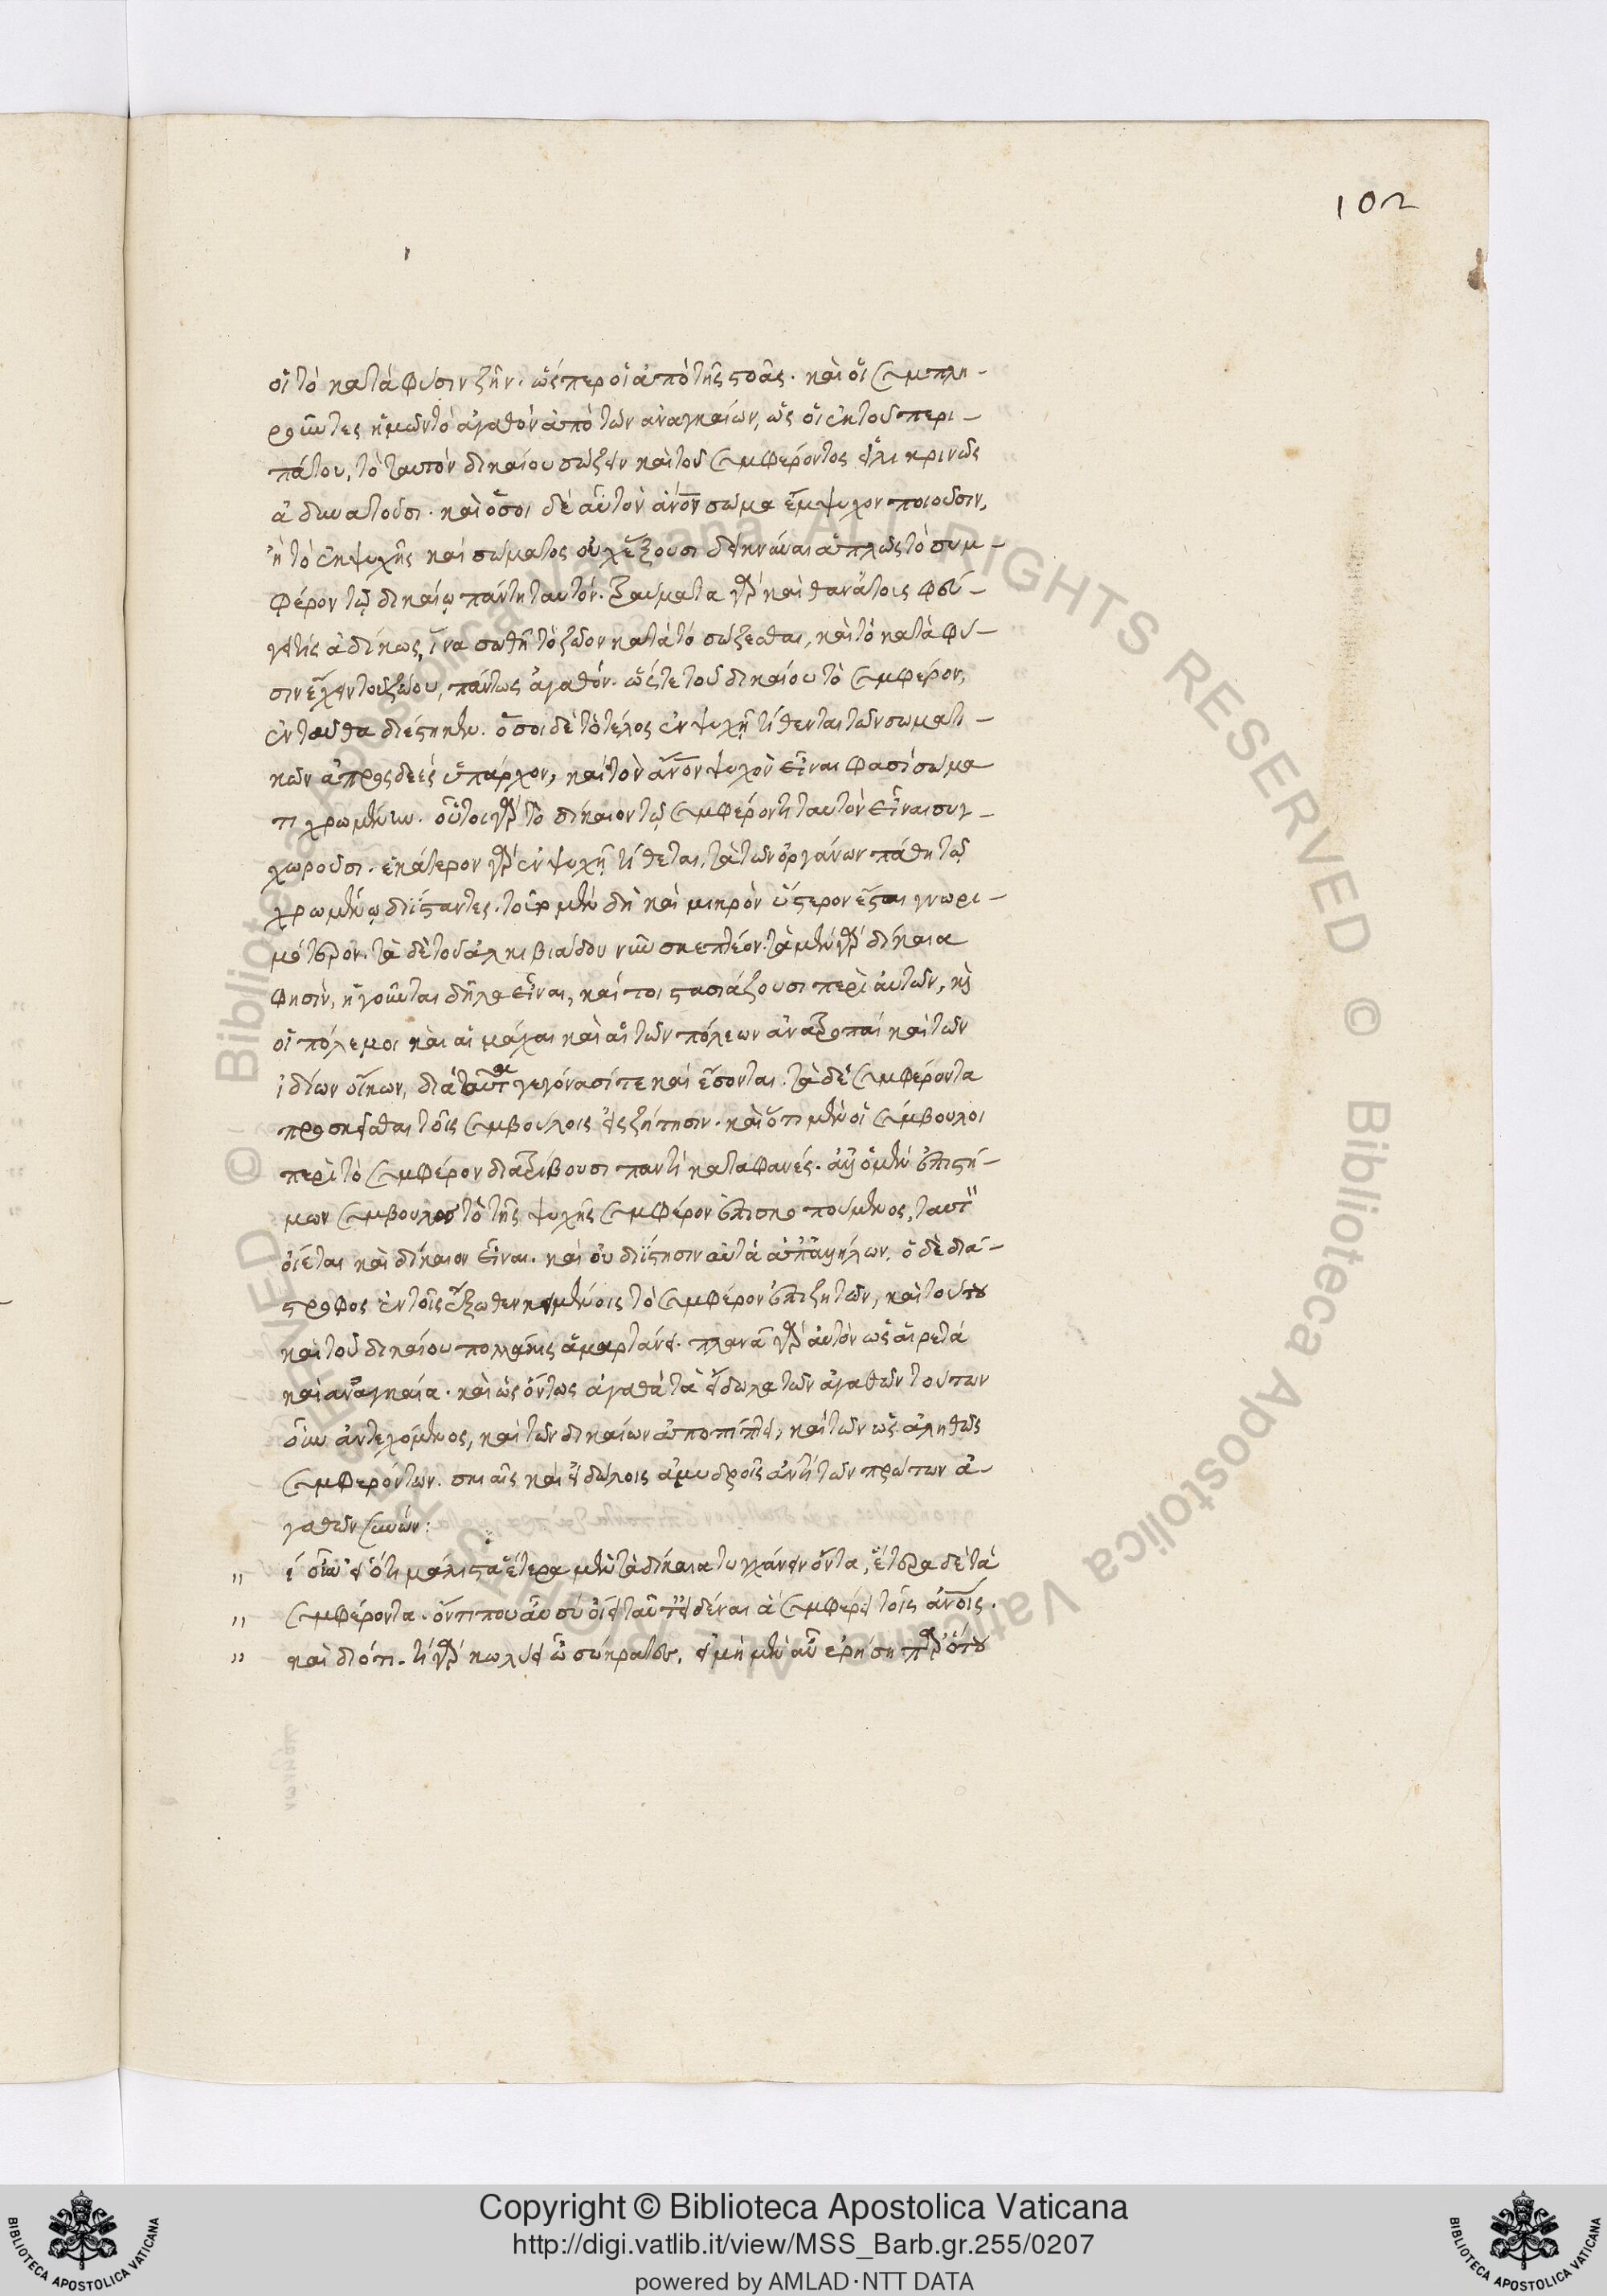 102
οἱ τὸ κατὰ φύσιν ζῆν. ὥσπερ οἱ ἀπὸ τῆς στοᾶς. καὶ οἱ συμπλη-
ροῦντες ἡμῶν τὸ ἀγαθὸν ἀπὸ τῶν ἀναγκαίων, ὡς οἱ ἐκ τοῦ περι-
πάτου, τὸ ταυτὸν δικαίου σώζειν καὶ τοῦ συμφέροντος εἰλικρινῶς
ἀδυνατοῦσι. καὶ ὅσοι δὲ αὐτὸν ἄνον σῶμα ἔμψυχον ποιοῦσιν,
ἢ τὸ ἐκ ψυχῆς καὶ σώματος οὐχ ἕξουσι δεικνύναι ἁπλῶς τὸ συμ-
φέρον τῷ δικαίῳ πάντη ταυτόν. τραύματα γὰρ καὶ θανάτοις φεύ-
γει τίς ἀδίκως, ἵνα σωθῇ τὸ ζῶον κατὰ τὸ σώζεσθαι, καὶ τὸ κατὰ φύ-
σιν ἔχειν τοῦ ζώου, πάντως ἀγαθόν. ὥστε τοῦ δικαίου τὸ συμφέρον,
ἐνταῦθα διέστηκεν. ὅσοι δὲ τὸ τέλος ἐν ψυχῇ τίθενται τῶν σωματι-
κῶν ἀπροσδεὲς ὑπάρχον, καὶ τὸν ἄνον ψυχὴν εἶναι φασὶ σώμα
τι χρωμένην. οὗτοι γὰρ τὸ δίκαιον τῷ συμφέροντι ταυτὸν εἶναι συγ-
χωροῦσι. ἑκάτερον γὰρ ἐν ψυχῇ τίθεται, τὰ τῶν ὀργάνων πάθη τῷ
χρωμένῳ διϊστάντες. τοῦτο μὲν δὴ καὶ μικρὸν ὕστερον ἔσται γνωρι-
μώτερον. τὰ δὲ τοῦ ἀλκιβιάδου νῦν σκεπτέον. τὰ μὲν γὰρ δίκαια
φησὶν, ἡγοῦνται δῆλα εἶναι, καί τοι στασιάζουσι περὶ αὐτῶν, καὶ
οἱ πόλεμοι καὶ αἱ μάχαι καὶ αἱ τῶν πόλεων ἀνατροπαὶ καὶ τῶν
ἰδίων οἴκων, διὰ ταῦτα γεγόνασί τε καὶ ἔσονται. τὰ δὲ συμφέροντα
προσκεῖσθαι τοῖς συμβούλοις εἰς ζήτησιν. καὶ ὅτι μὲν οἱ σύμβουλοι
περὶ τὸ συμφέρον διατρίβουσι παντὶ καταφανές. ἀλλ' ὁ μὲν ἐπιστή-
μων σύμβουλος τὸ τῆς ψυχῆς συμφέρον ἐπισκοπούμενος, ταυτ
οἴεται καὶ δίκαιον εἶναι. καὶ οὐ διΐστησιν αὐτὰ ἀπ' ἀλλήλων. ὁ δὲ διά-
στροφος ἐν τοῖς ἔξωθεν κειμένοις τὸ συμφέρον ἐπιζητῶν, καὶ τούτου
καὶ τοῦ δικαίου πολλάκις ἁμαρτάνει. πλανᾷ γὰρ αὐτὸν ὡς αἱρετὰ
καὶ ἀναγκαῖα. καὶ ὡς ὄντως ἀγαθὰ τὰ εἴδωλα τῶν ἀγαθῶν τούτων
οὖν ἀντεχόμενος, καὶ τῶν δικαίων ἀποπίπτει, καὶ τῶν ὡς ἀληθῶς
συμφερόντων. σκιαῖς καὶ εἰδώλοις ἀμυδροῖς ἀντὶ τῶν πρώτων ἀ-
γαθῶν συνών:
" ί οὖν εἰ ὅτι μάλιστα ἕτερα μὲν τὰ δίκαια τυγχάνει ὄντα, ἕτερα δὲ τὰ
" συμφέροντα. οὔτι που αὖ σὺ οἴει ταῦτ' εἰδέναι ἃ συμφέρει τοῖς ἀνοις.
" καὶ διότι. τί γὰρ κωλύει ὦ σώκρατες, εἰ μὴ μὲν αὖ ἐρήσῃ παρ' ὅτου
Copyright © Biblioteca Apostolica Vaticana
http://digi.vatlib.it/view/MSS_Barb.gr.255/0207
powered by AMLAD·NTT DATA
BIBLIOTECA APOSTOLICA VATICANA
BIBLIOTECA APOSTOLICA VATICANA
© Biblioteca Apostolica Vaticana ALL RIGHTS RESERVED
© Biblioteca Apostolica Vaticana ALL RIGHTS RESERVED